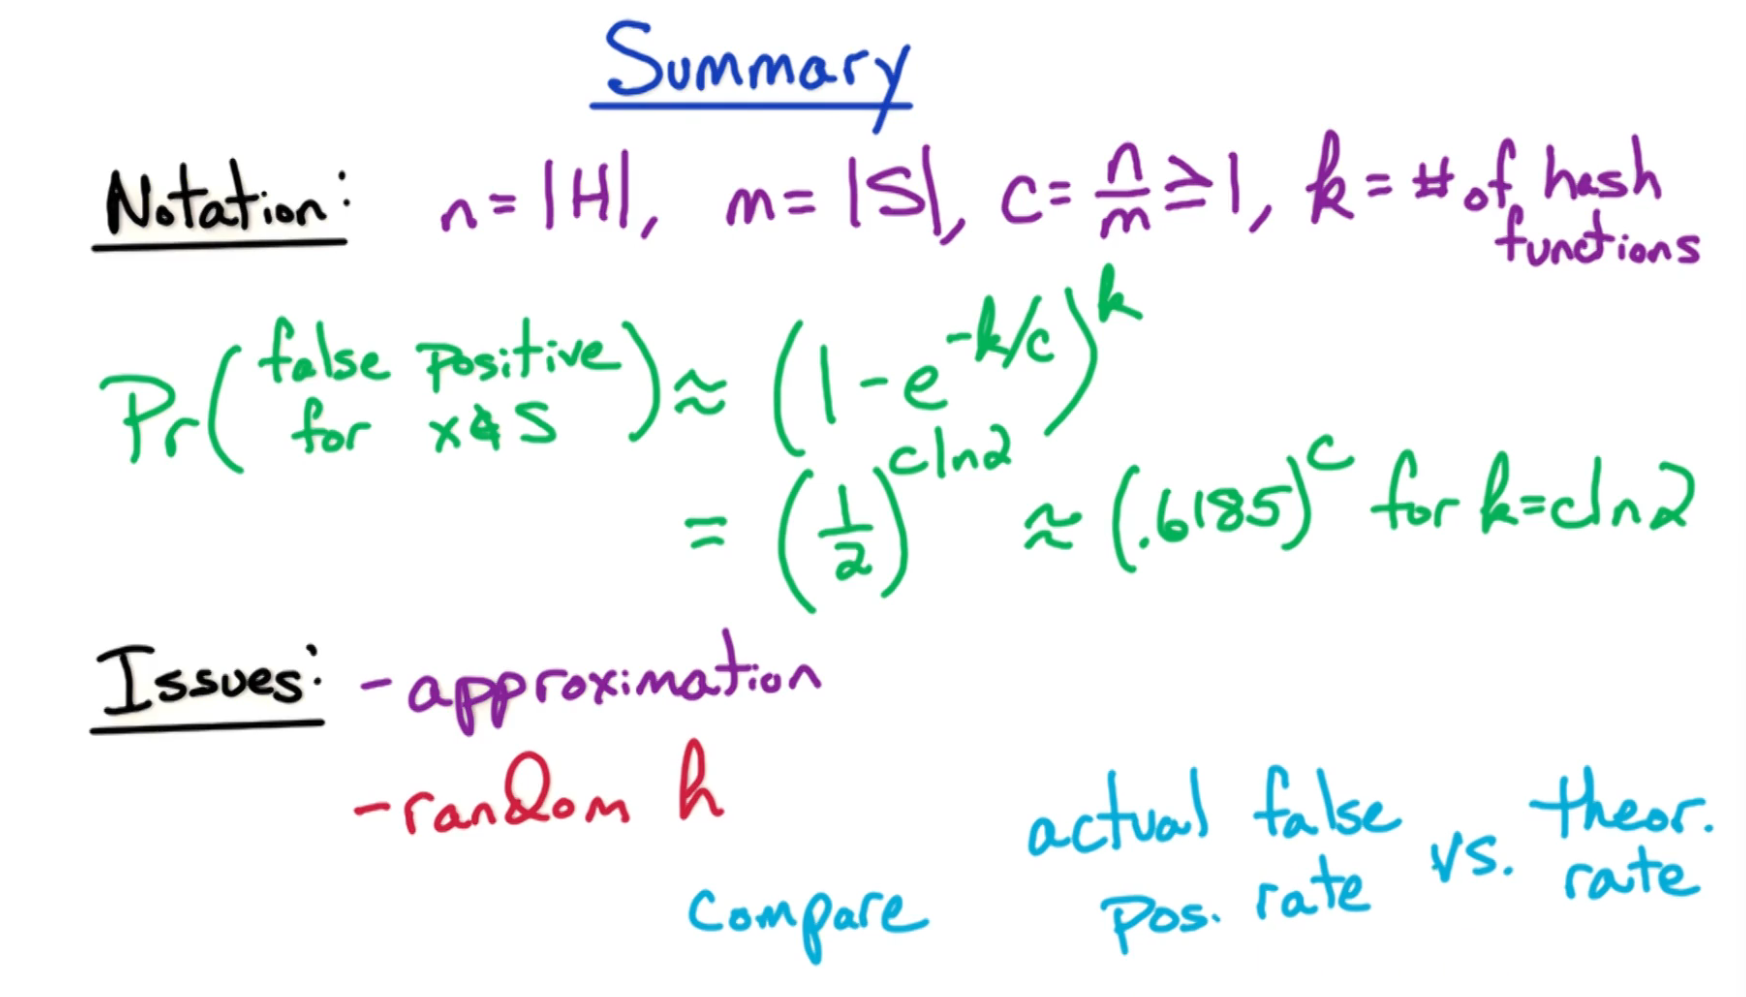 Summary
Notation: n = |H|, m = |S|, c = n/m ≥ 1, k = # of hash
functions
Pr(false positive for x∉S) ≈ (1 - e^(-k/c))^k
= (1/2)^(c ln 2) ≈ (.6185)^c for k = c ln 2
Issues: - approximation
- random h
compare actual false pos. rate vs. theor. rate